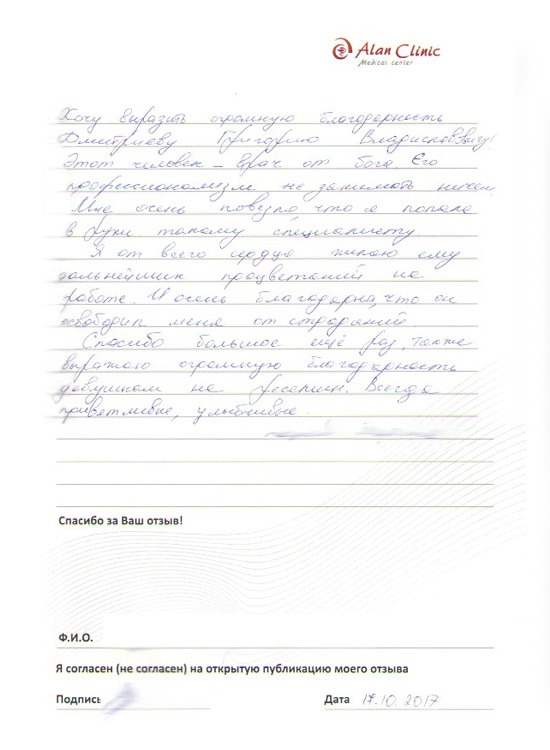 Alan Clinic
Medical center
Хочу выразить огромную благодарность
Дмитриеву Григорию Владиславовичу!
Этот человек – врач от бога. Его
профессионализм не занимать ничем.
Мне очень повезло, что я попала
в руки такому специалисту.
Я от всего сердца желаю ему
дальнейших процветаний на
работе. И очень благодарна, что он
освободил меня от страданий.
Спасибо большое ещё раз, также
выражаю огромную благодарность
девушкам на ресепшн. Всегда
приветливые, улыбчивые.
Спасибо за Ваш отзыв!
Ф.И.О.
Я согласен (не согласен) на открытую публикацию моего отзыва
Подпись
Дата 17.10.2017